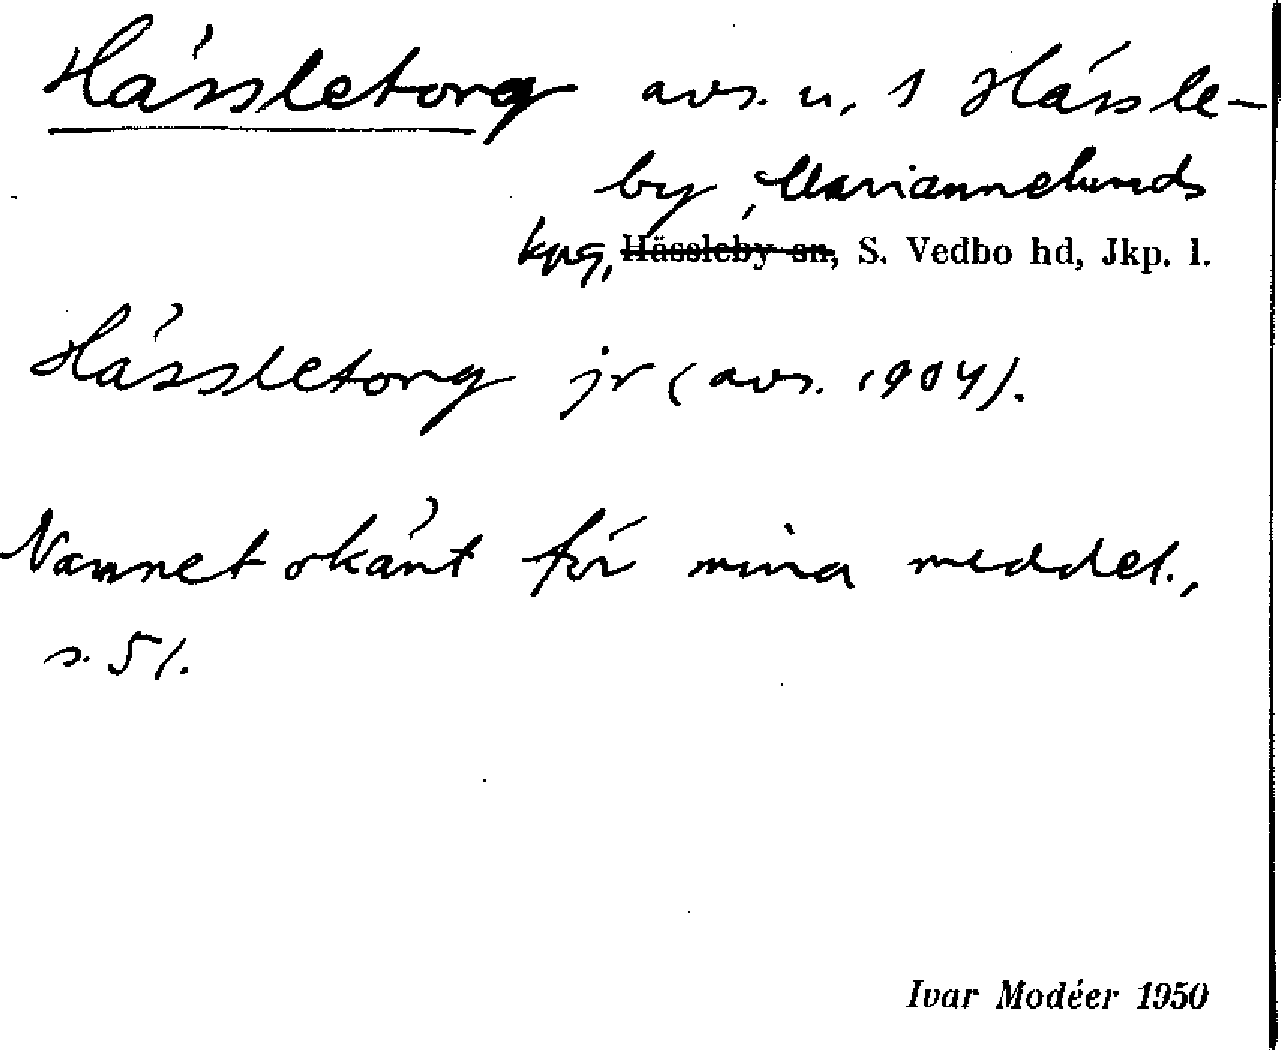 Hässletorg avs. u. 1 Hässle-
by, Mariannelunds
kpg, Hässleby sn, S. Vedbo hd, Jkp. l.
Hässletorg jr (avs. 1904).
Namnet okänt för mina meddel.,
s. 51.
Ivar Modéer 1950